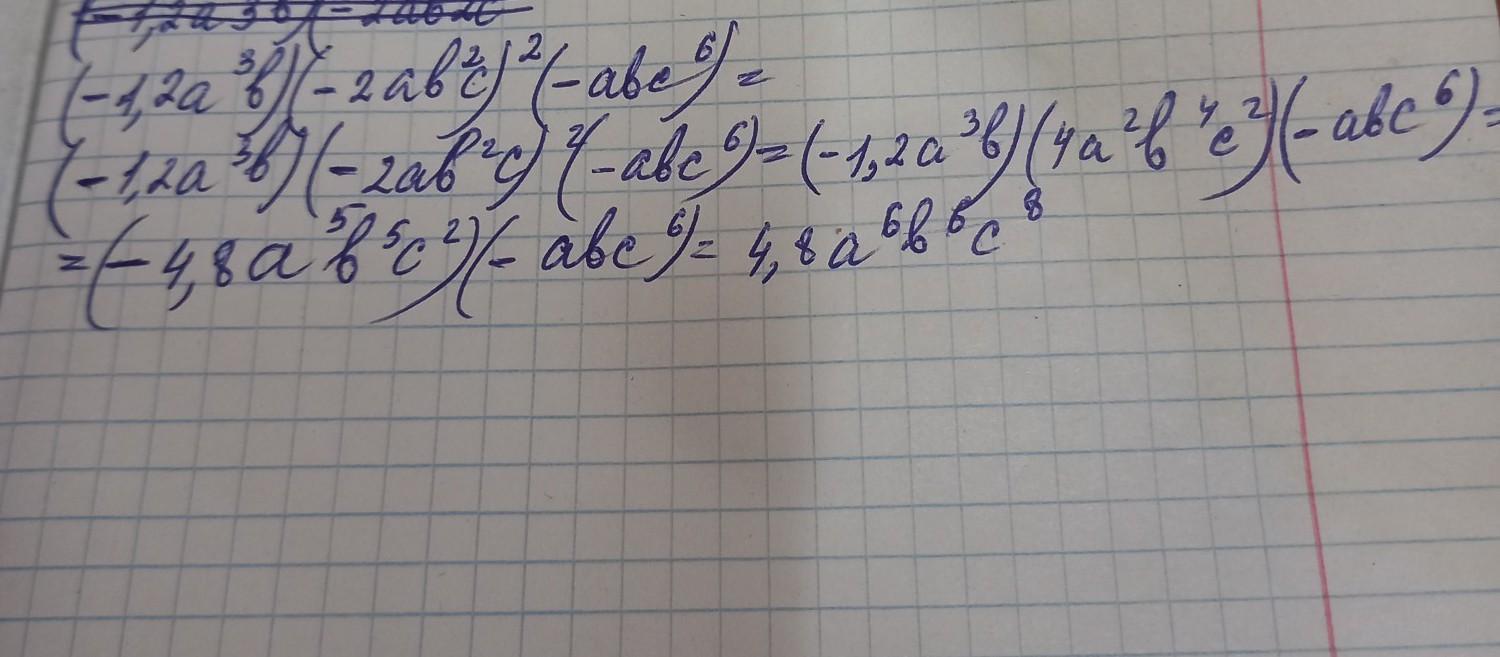 (-1,2a3b)(-2ab2c
(-1,2a³b)(-2ab²c)²(-abc⁶)=
(-1,2a³b)(-2ab²c)²(-abc⁶)=(-1,2a³b)(4a²b⁴c²)(-abc⁶)=
=(-4,8a⁵b⁵c²)(-abc⁶)=4,8a⁶b⁶c⁸